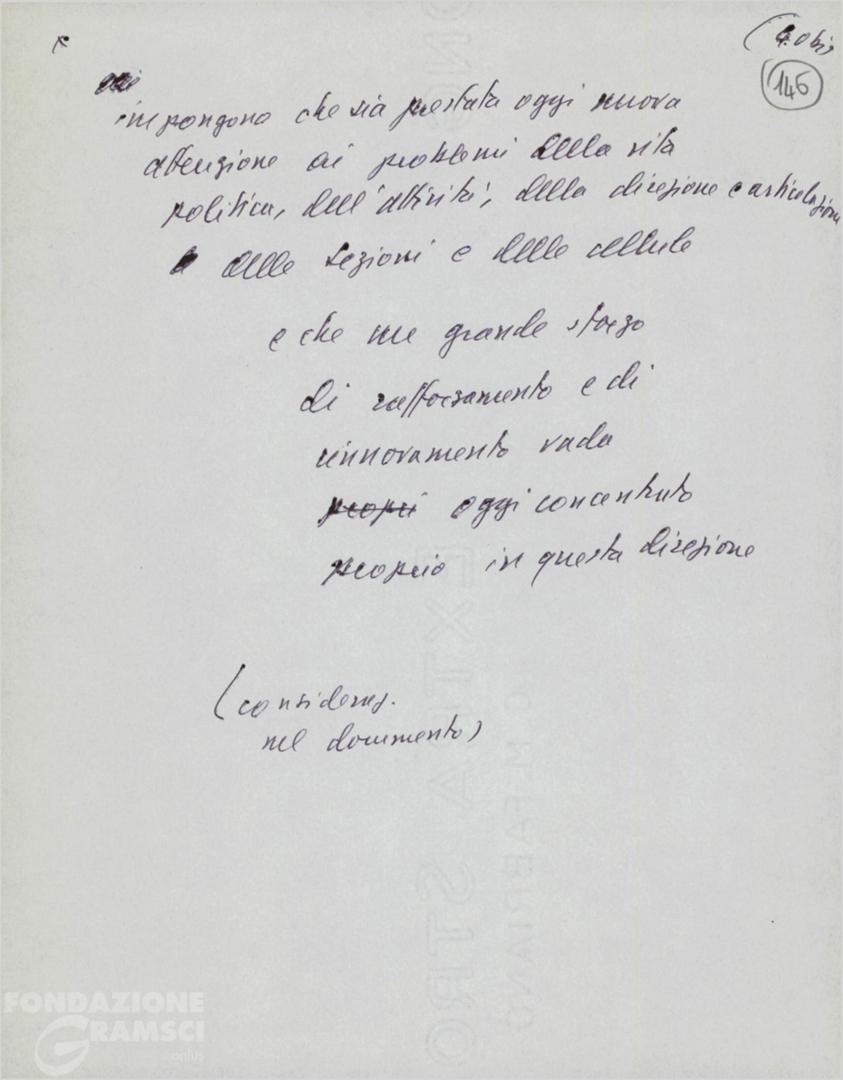 (4.0bis
145
impongono che sia prestata oggi nuova
attenzione ai problemi della vita
politica, dell'attività, della direzione e articolazione
delle Sezioni e delle cellule
e che un grande sforzo
di rafforzamento e di
rinnovamento vada
propri oggi concentrato
proprio in questa direzione
(consideraz.
nel documento)
EXTRA STRO
M. FABRIANO
FONDAZIONE
GRAMSCI
onlus